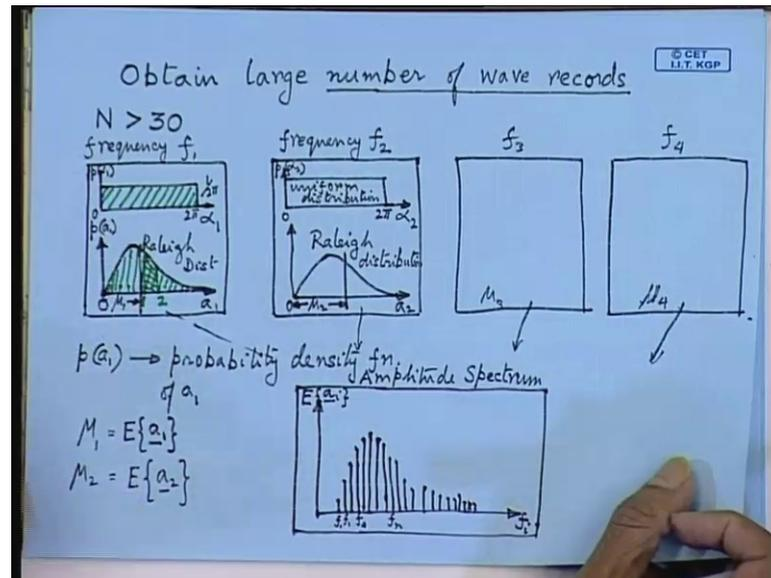 © CET
I.I.T. KGP
Obtain large number of wave records
N > 30
frequency f₁
frequency f₂
f₃
f₄
p(α₁)
2π
0
2π
α₁
p(a₁)
Raleigh
Dist
0
μ₁
2
a₁
uniform
distribution
0
2π
α₂
Raleigh
distribution
0
μ₂
a₂
μ₃
μ₄
p(a₁) → probability density fn.
of a₁
μ₁ = E{a₁}
μ₂ = E{a₂}
Amplitude Spectrum
E{aᵢ}
fₙ
fᵢ